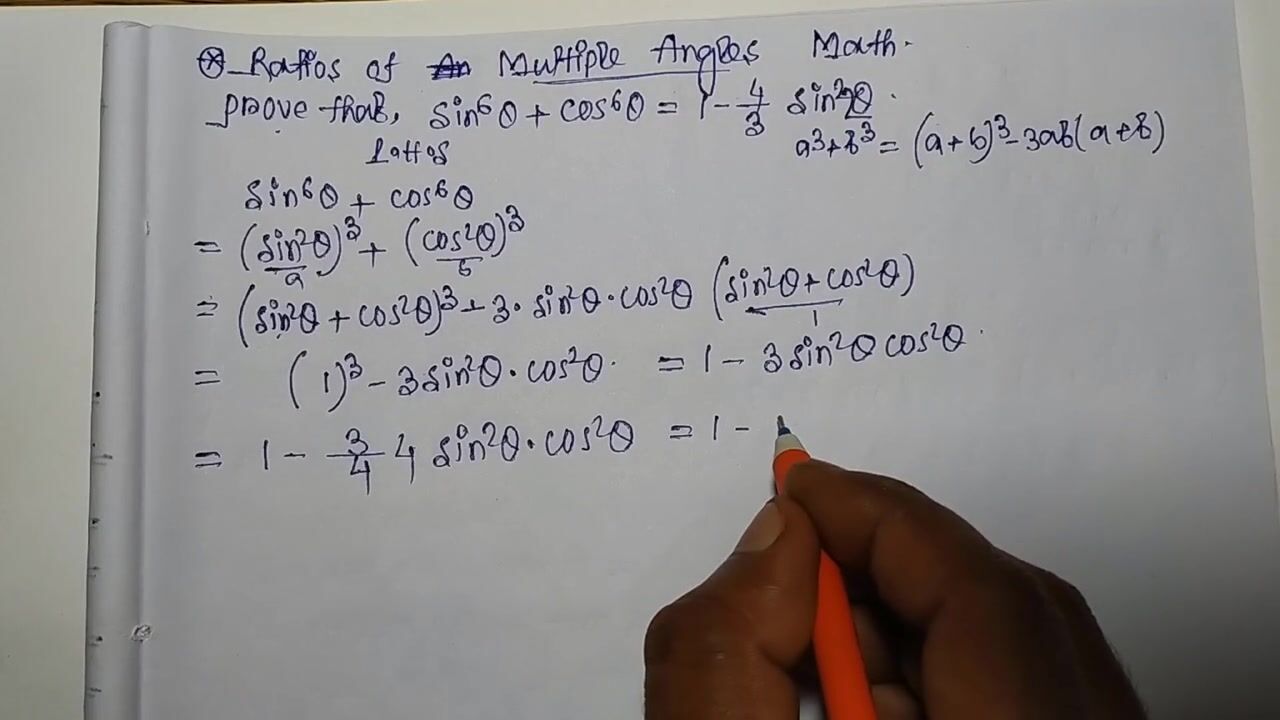 ⊛ Ratios of Multiple Angles Math.
prove that, sin⁶θ + cos⁶θ = 1 - 4/3 sin²2θ.
a³+b³ = (a+b)³-3ab(a+b)
sin⁶θ + cos⁶θ
= (sin²θ)³ + (cos²θ)³
a b
= (sin²θ + cos²θ)³ - 3·sin²θ·cos²θ (sin²θ + cos²θ)
1
= (1)³ - 3sin²θ·cos²θ. = 1 - 3sin²θcos²θ.
= 1 - 3/4 4 sin²θ·cos²θ = 1 -